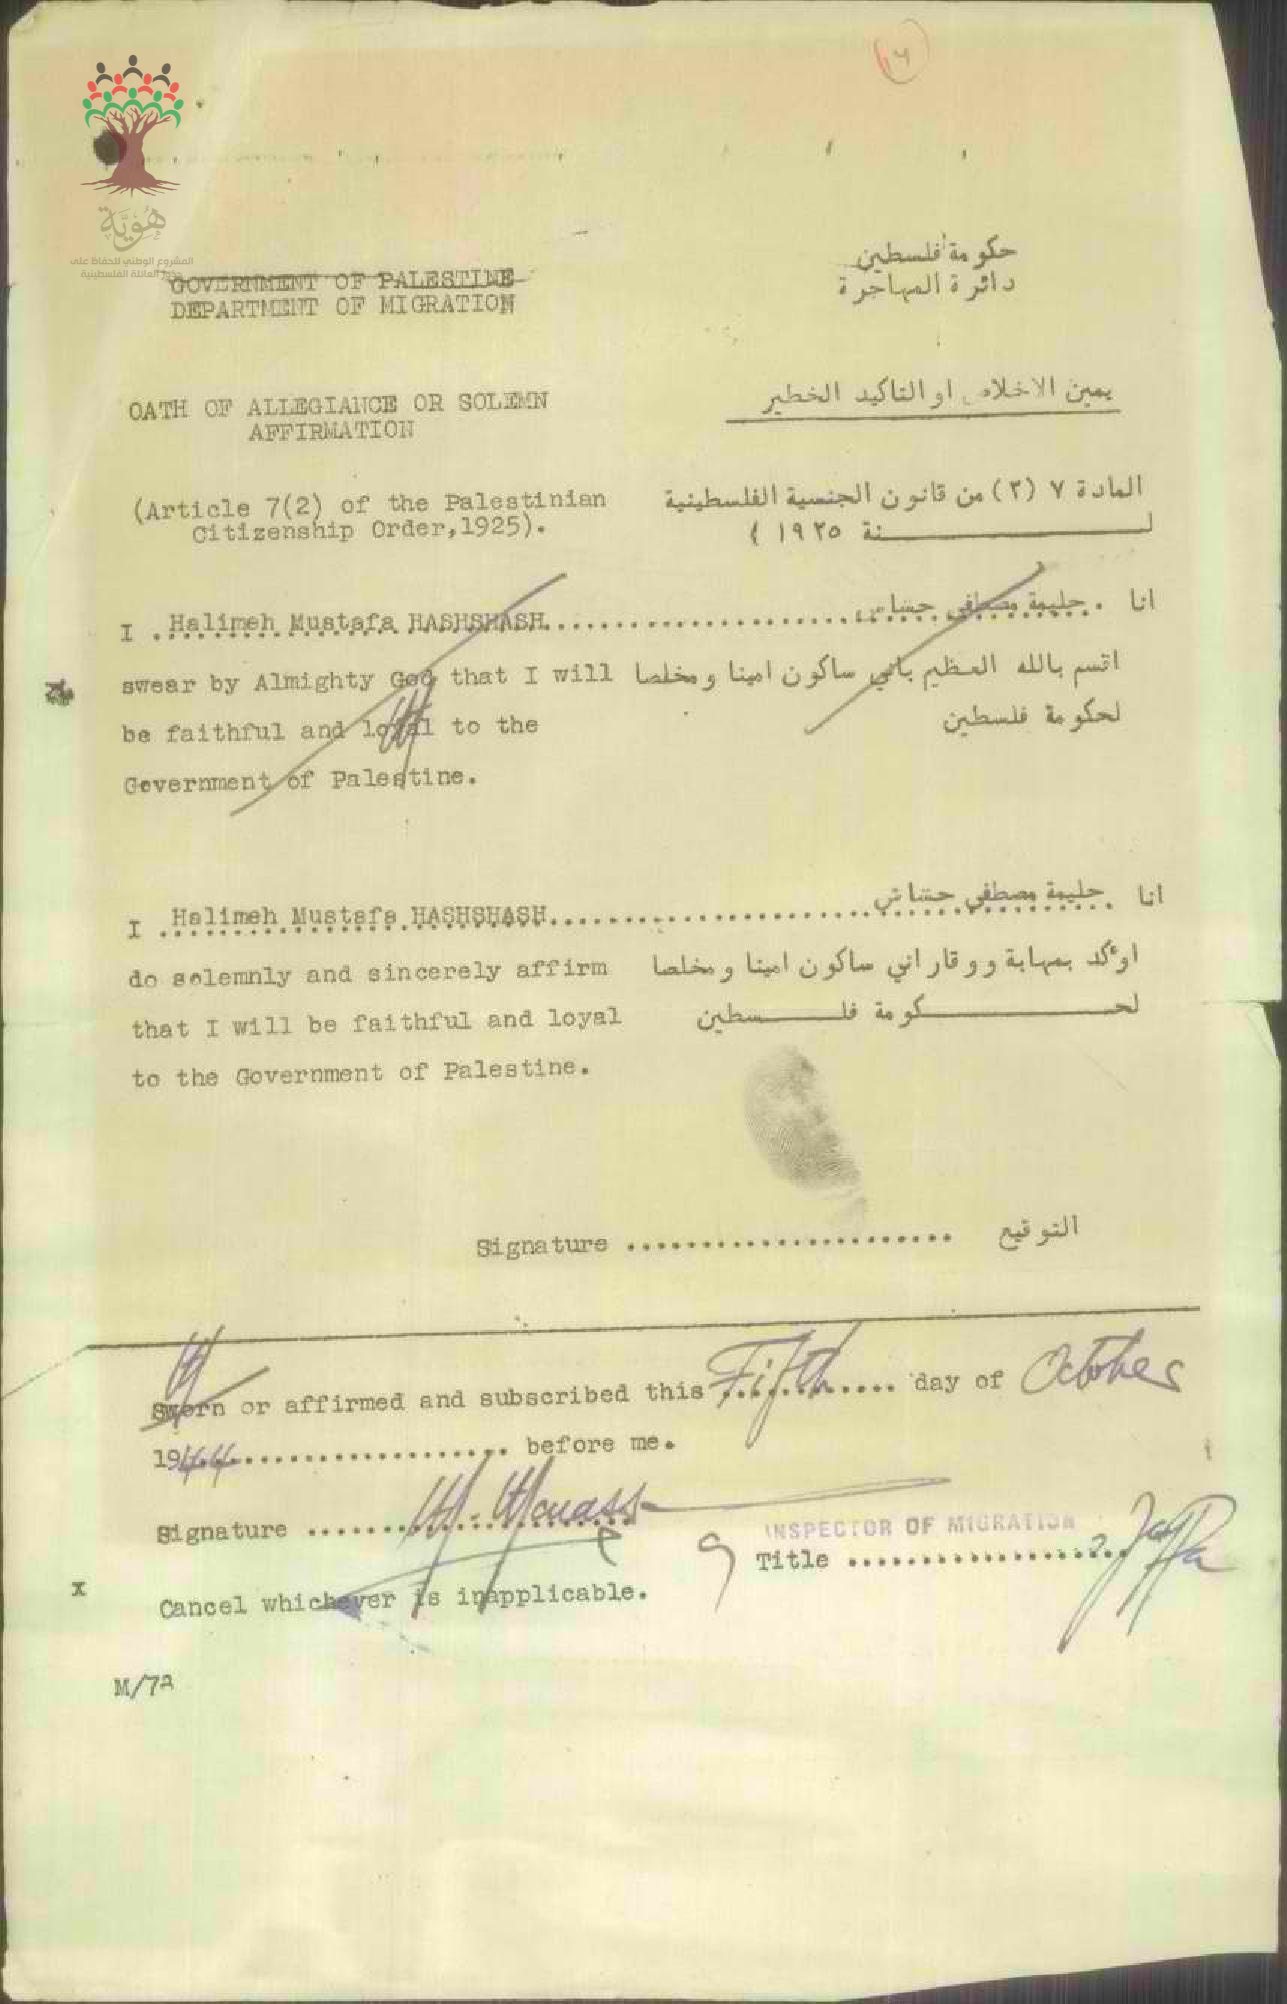 هوية
المشروع الوطني للحفاظ على
جذور العائلة الفلسطينية
GOVERNMENT OF PALESTINE
DEPARTMENT OF MIGRATION
حكومة فلسطين
دائرة المهاجرة
OATH OF ALLEGIANCE OR SOLEMN
AFFIRMATION
يمين الاخلاص او التاكيد الخطير
(Article 7(2) of the Palestinian
Citizenship Order,1925).
المادة ٧ (٢) من قانون الجنسية الفلسطينية
لسنة ١٩٢٥ )
I Halimeh Mustafa HASHSHASH
انا حليمة مصطفى حشاش
swear by Almighty God that I will
اقسم بالله العظيم باني ساكون امينا ومخلصا
be faithful and loyal to the
لحكومة فلسطين
Government of Palestine.
I Halimeh Mustafa HASHSHASH
انا حليمة مصطفي حشاش
do solemnly and sincerely affirm
اوءكد بمهابة ووقار اني ساكون امينا ومخلصا
that I will be faithful and loyal
لحكومة فلسطين
to the Government of Palestine.
Signature ...................... التوقيع
Sworn or affirmed and subscribed this Fifth day of October
1944 before me.
Signature
INSPECTOR OF MIGRATION
Title Jaffa
x Cancel whichever is inapplicable.
M/7a